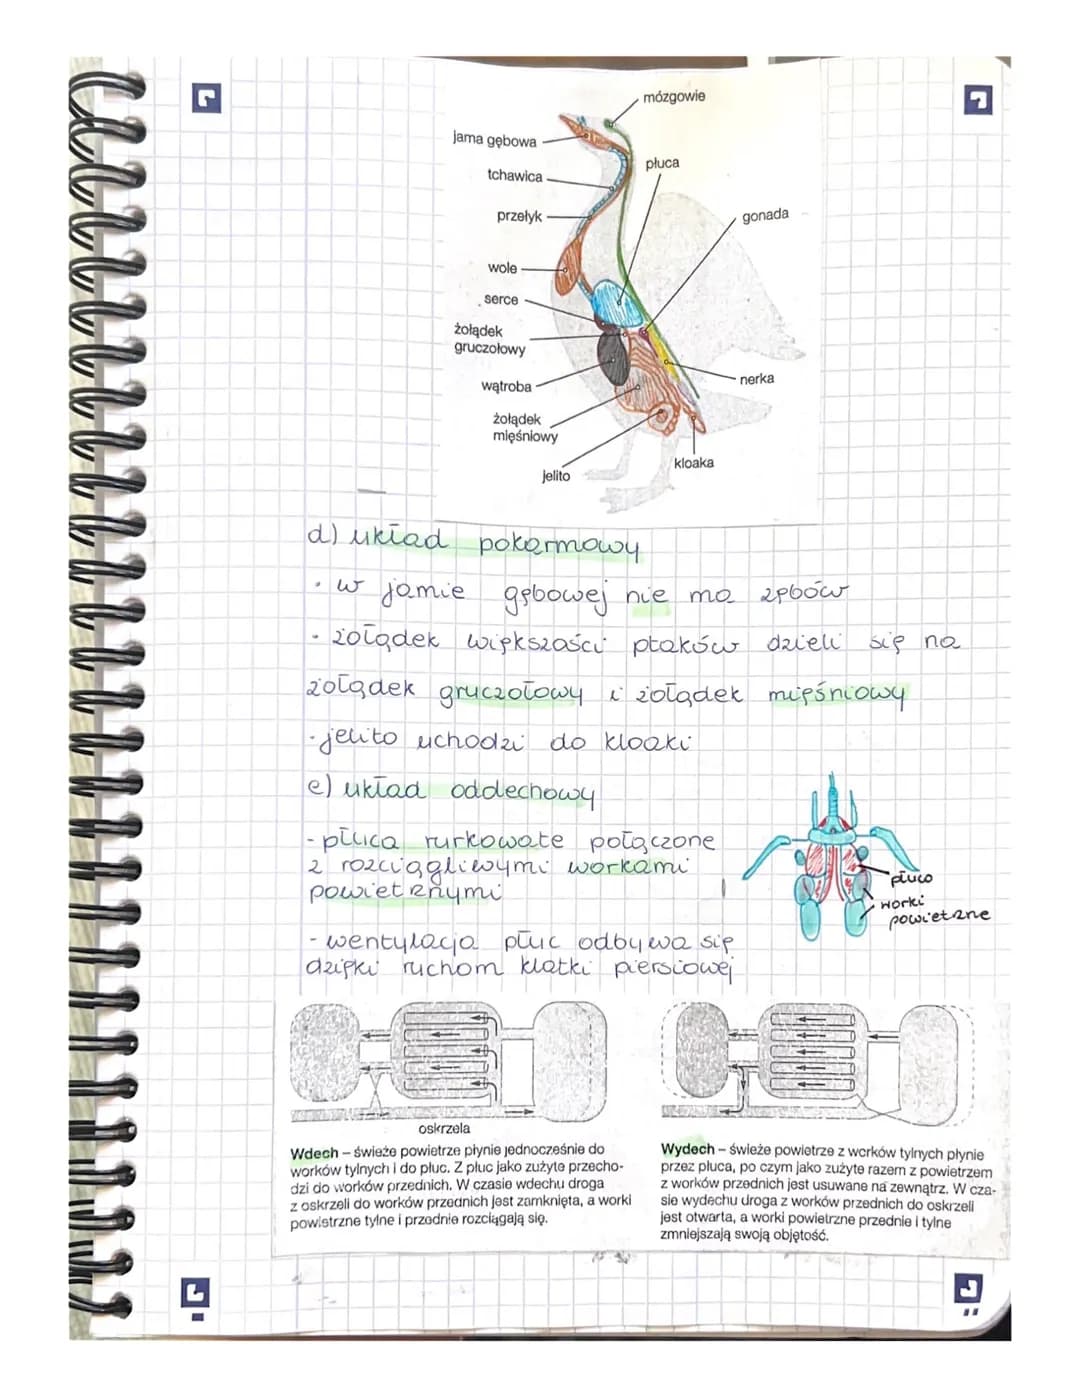 mózgowie
jama gębowa
płuca
tchawica
gonada
przełyk
wole
serce
żołądek
gruczołowy
nerka
wątroba
żołądek
mięśniowy
kloaka
jelito
d) układ pokarmowy
· w jamie gębowej nie ma zębów
· żołądek większości ptaków dzieli się na
żołądek gruczołowy i żołądek mięśniowy
· jelito uchodzi do kloaki
e) układ oddechowy
- płuca rurkowate połączone
z rozciągliwymi workami
powietrznymi
płuco
worki
powietrzne
- wentylacja płuc odbywa się
dzięki ruchom klatki piersiowej
oskrzela
Wdech – świeże powietrze płynie jednocześnie do
worków tylnych i do płuc. Z płuc jako zużyte przecho-
dzi do worków przednich. W czasie wdechu droga
z oskrzeli do worków przednich jest zamknięta, a worki
powietrzne tylne i przednie rozciągają się.
Wydech – świeże powietrze z worków tylnych płynie
przez płuca, po czym jako zużyte razem z powietrzem
z worków przednich jest usuwane na zewnątrz. W cza-
sie wydechu droga z worków przednich do oskrzeli
jest otwarta, a worki powietrzne przednie i tylne
zmniejszają swoją objętość.